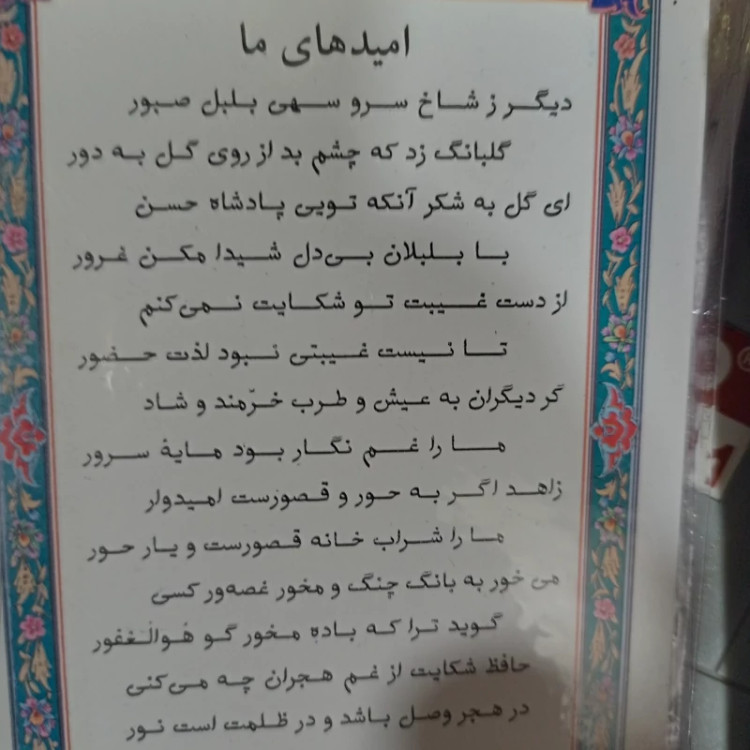 امیدهای ما
دیگر ز شاخ سرو سهی بلبل صبور
گلبانگ زد که چشم بد از روی گل به دور
ای گل به شکر آنکه تویی پادشاه حسن
با بلبلان بی‌دل شیدا مکن غرور
از دست غیبت تو شکایت نمی‌کنم
تا نیست غیبتی نبود لذت حضور
گر دیگران به عیش و طرب خرّمند و شاد
ما را غم نگار بود مایهٔ سرور
زاهد اگر به حور و قصورست امیدوار
ما را شراب خانه قصورست و یار حور
می خور به بانگ چنگ و مخور غصه‌ور کسی
گوید ترا که باده مخور گو هُوالغفور
حافظ شکایت از غم هجران چه می‌کنی
در هجر وصل باشد و در ظلمت است نور